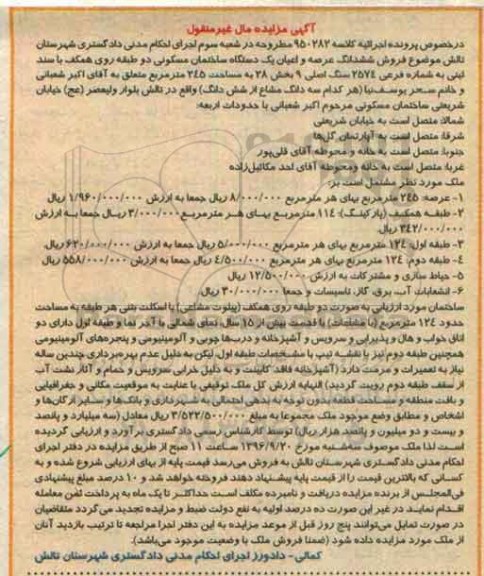 آگهی مزایده مال غیرمنقول
درخصوص پرونده اجرائیه کلاسه ۹۵۰۲۸۲ مطروحه در شعبه سوم اجرای احکام مدنی دادگستری شهرستان
تالش موضوع فروش ششدانگ عرصه و اعیان یک دستگاه ساختمان مسکونی دو طبقه روی همکف با سند
ثبتی به شماره فرعی ۲۵۷٤ سنگ اصلی ۹ بخش ۲۸ به مساحت ۲٤۵ مترمربع متعلق به آقای اکبر شعبانی
و خانم سحر یوسف‌نیا (هر کدام سه دانگ مشاع از شش دانگ) واقع در تالش بلوار ولیعصر (عج) خیابان
شریعتی ساختمان مسکونی مرحوم اکبر شعبانی با حدودات اربعه:
شمالا: متصل است به خیابان شریعتی
شرقا: متصل است به آپارتمان گل‌ها
جنوبا: متصل است به خانه و محوطه آقای قلی‌پور
غربا: متصل است به خانه ومحوطه آقای احد مکائیل‌زاده
ملک مورد نظر مشتمل است بر:
۱- عرصه: ۲٤۵ مترمربع بهای هر مترمربع ۸/۰۰۰/۰۰۰ ریال جمعا به ارزش ۱/۹۶۰/۰۰۰/۰۰۰ ریال
۲- طبقه همکف (پارکینگ): ۱۱٤ مترمربع بهای هر مترمربع ۳/۰۰۰/۰۰۰ ریال جمعا به ارزش
۳٤۲/۰۰۰/۰۰۰ ریال
۳- طبقه اول: ۱۲٤ مترمربع بهای هر مترمربع ۵/۰۰۰/۰۰۰ ریال جمعا به ارزش ۶۲۰/۰۰۰/۰۰۰ ریال
٤- طبقه دوم: ۱۲٤ مترمربع بهای هر مترمربع ٤/۵۰۰/۰۰۰ ریال جمعا به ارزش ۵۵۸/۰۰۰/۰۰۰ ریال
۵- حیاط سازی و مشترکات به ارزش ۱۲/۵۰۰/۰۰۰ ریال
۶- انشعابات آب، برق، گاز، تاسیسات و جمعا ۳۰/۰۰۰/۰۰۰ ریال.
ساختمان مورد ارزیابی به صورت دو طبقه روی همکف (پیلوت مشاعی) با اسکلت بتنی هر طبقه به مساحت
حدود ۱۲٤ مترمربع (با مشاعات) با قدمت بیش از ۱۵ سال، نمای شمالی با آجر نما و طبقه اول دارای دو
اتاق خواب و هال و پذیرایی و سرویس و آشپزخانه و درب‌ها چوبی و آلومینیومی و پنجره‌های آلومینیومی
همچنین طبقه دوم نیز با نقشه تیپ با مشخصات طبقه اول، لیکن به دلیل عدم بهره‌برداری چندین ساله
نیاز به تعمیرات و مرمت دارد (آشپزخانه فاقد کابینت و به دلیل خرابی سرویس و حمام و آثار نشت آب
از سقف طبقه دوم رویت گردید) النهایه ارزش کل ملک توقیفی با عنایت به موقعیت مکانی و جغرافیایی
و بافت منطقه و مساحت قطعه بدون توجه به بدهی احتمالی به شهرداری و بانک‌ها و سایر ارگان‌ها و
اشخاص و مطابق وضع موجود ملک مجموعا به مبلغ ۳/۵۲۲/۵۰۰/۰۰۰ ریال معادل (سه میلیارد و پانصد
و بیست و دو میلیون و پانصد هزار ریال) توسط کارشناس رسمی دادگستری برآورد و ارزیابی گردیده
است لذا ملک موصوف سه‌شنبه مورخ ۱۳۹۶/۹/۲۰ ساعت ۱۱ صبح از طریق مزایده در دفتر اجرای
احکام مدنی دادگستری شهرستان تالش به فروش می‌رسد قیمت پایه از بهای ارزیابی شروع شده و به
کسانی که بالاترین قیمت را از قیمت پایه پیشنهاد دهند فروخته خواهد شد و ۱۰ درصد مبلغ پیشنهادی
فی‌المجلس از برنده مزایده دریافت و نامبرده مکلف است حداکثر تا یک ماه به پرداخت ثمن معامله
اقدام نماید در غیر این صورت ده درصد اولیه به نفع دولت ضبط و مزایده تجدید می‌گردد متقاضیان
در صورت تمایل می‌توانند پنج روز قبل از موعد مزایده به این دفتر اجرا مراجعه تا ترتیب بازدید آنان
از ملک مورد مزایده داده شود (ضمنا فروش ملک با وضعیت موجود می‌باشد).
کمالی- دادورز اجرای احکام مدنی دادگستری شهرستان تالش